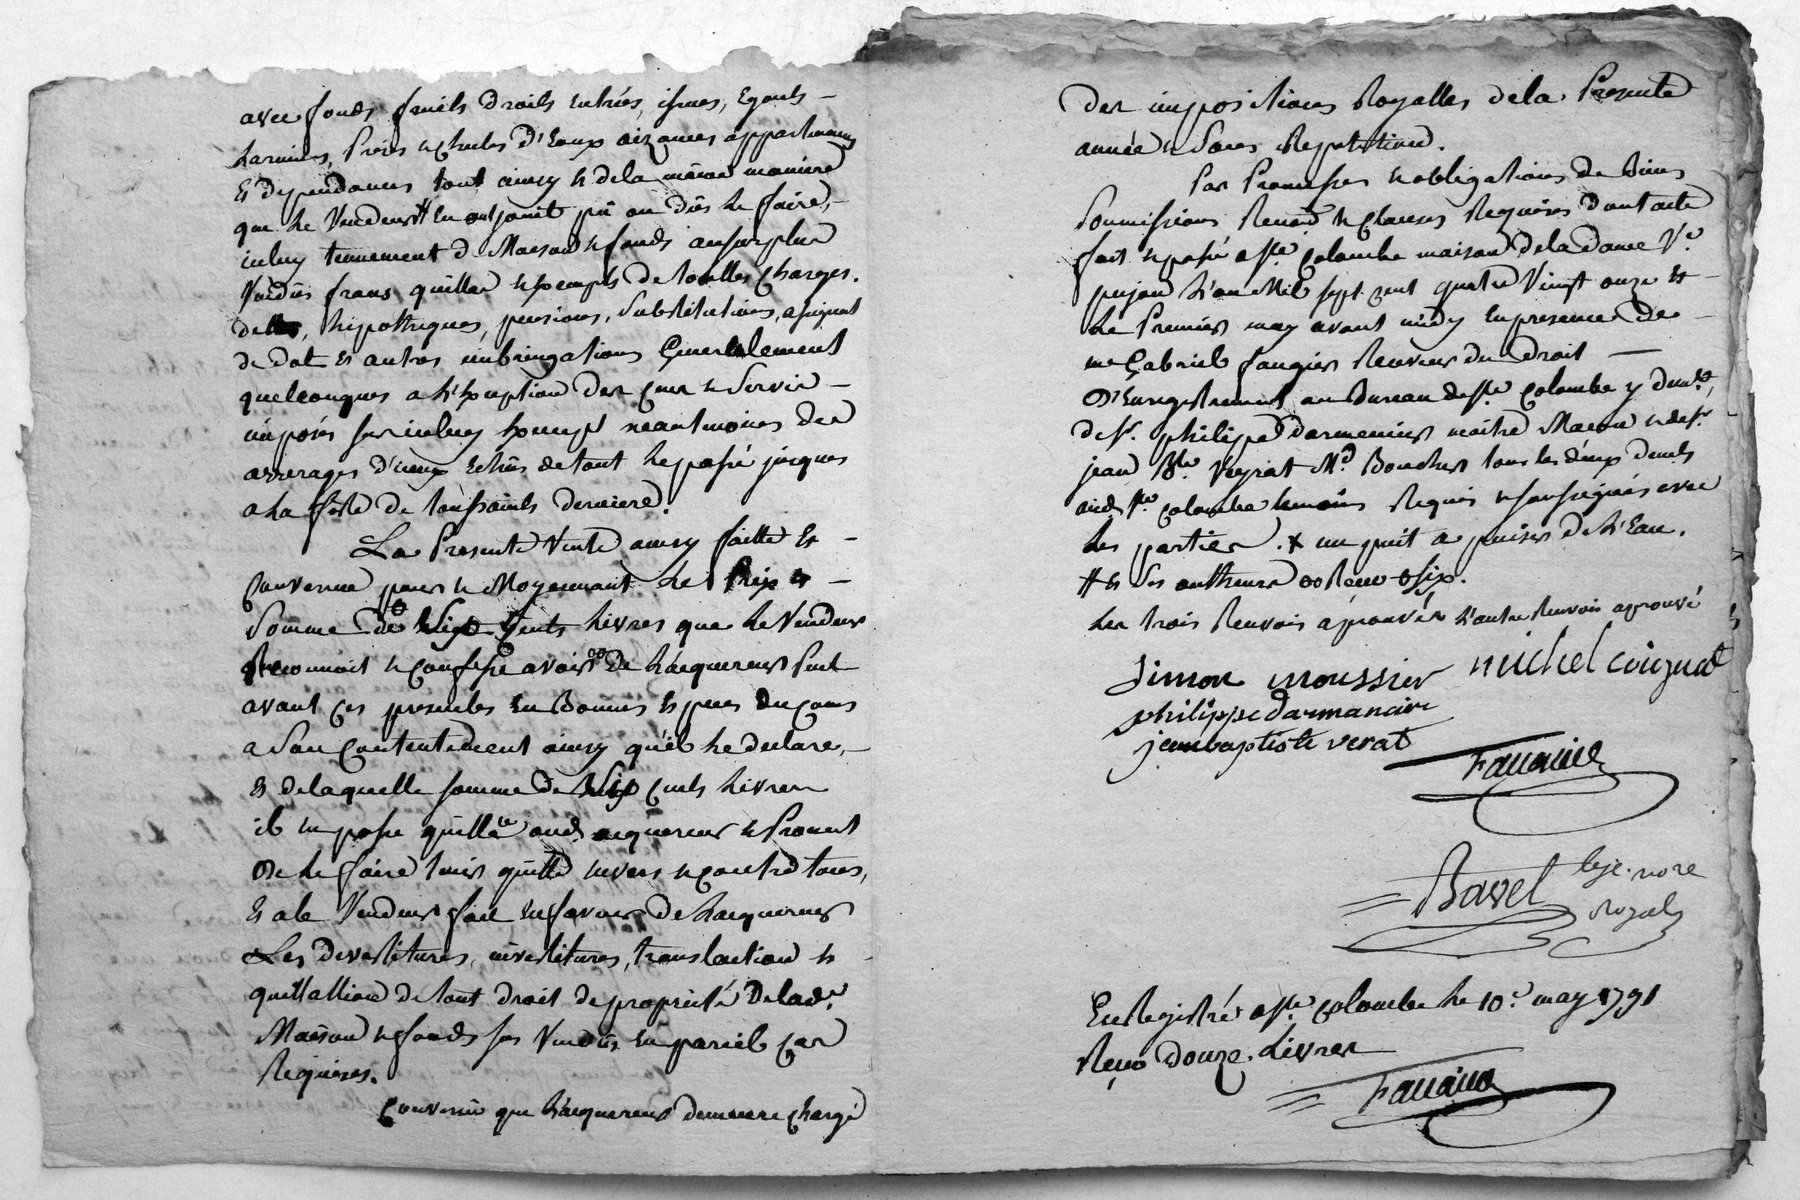 avec fonds fruits droits entrées, issues, Egouts –
Larmiers, prises et chutes d'Eaux aizances appartenances
Et dependances tout ainsy et de la même maniere
que le Vendeur # En ont jouit pû ou dûs le faire, –
iceluy tennement de Maison et fonds ausurplus
Vendûs francs quittes exempts de touttes charges.
dettes, hipotheques, pensions, substitutions, assignat
de dot et autres imbringations Generalement
quelconques a L'Exception des cens et servis –
imposés sur iceluy Exempt neantmoins des
arrerages d'iceux Echûs de tout le passé jusques
a La fête de toussaints derniere.
La Presente Vente ainsy faitte Et –
Convenue pour et Moyennant le Prix et –
Somme de Cents Livres que le Vendeur
Reconnoit et Confesse avoir de L'acquereur
avant ces presentes En Bonnes Especes du Cours
a Son Contentement ainsy qu'il le declare, –
Et de laquelle somme de Six Cents Livres
il en passe quittance aud. acquereur et Promet
de le faire tenir quitte envers et contre tous,
Et a le Vendeur fait en faveur de L'acquereur
Les devestitures, investitures, translation et
quittation de tout droit de proprieté de lad.e
Maison et fonds sus Vendûs En pareil cas
Requises.
Convenû que L'acquereur demeure chargé
des impositions Royalles de la Presente
année et Sans Repetition.
Par Promesses et obligations de Biens
Soumissions Renon.ons et Clauses Requises dont acte
fait et passé a Ste. Colombe maison de la dame Ve.
pujon L'an Mil sept cent quatre Vingt onze et –
Le Premier may avant midy En presence de –
me Gabriel faugier Receveur du droit –
D'Enregistrement au Bureau de Ste. Colombe y dem.t,
de Sr. philippe Darmencier maitre Macon et de Sr.
jean Bte. Veyrat Md. Boucher tous les deux dem.ts
aud. Ste. Colombe temoins Requis et soussignés avec
Les parties. + un puit a puiser de L'Eau.
# et Ses autheurs oo Recu Six.
Les trois Renvois aprouvés L'autre Renvois aprouvé
Simon moussier michel coignat
philippe darmancier
jean baptiste verat
Faugier
Bavet
nore
Royal
En Registré a Ste. Colombe Le 10.e may 1791
Reçu Douze Livres
Faugier